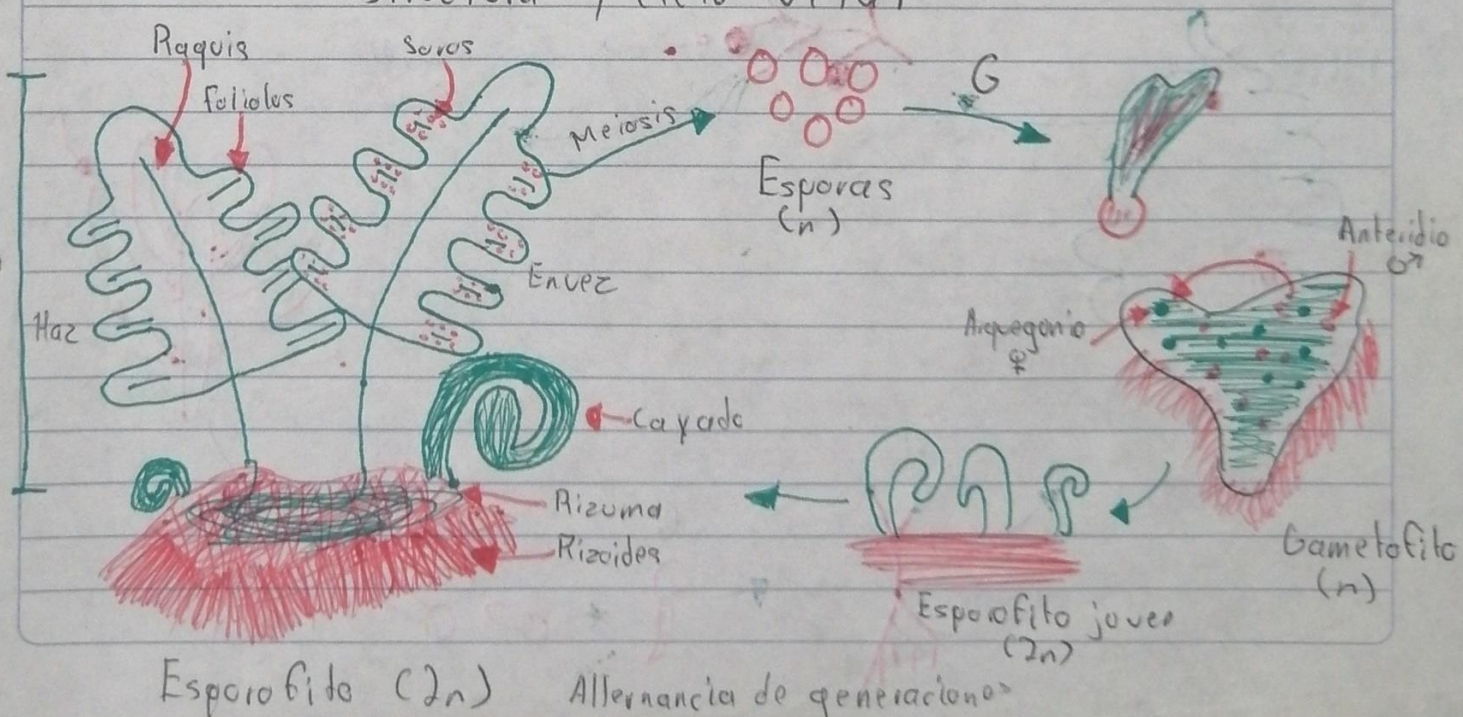 Raquis
Soros
foliolos
Meiosis
G
Esporas
(n)
Anteridio
♂
Envez
Haz
Arquegonio
♀
Cayado
Rizoma
Rizoides
Gametofito
(n)
Esporofito joven
(2n)
Esporofito (2n)
Alternancia de generaciones